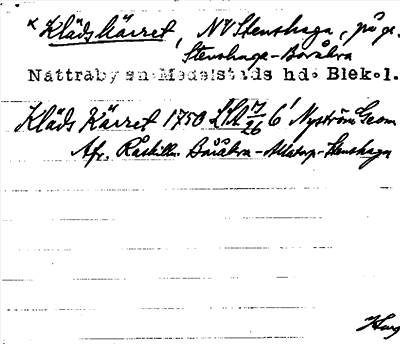 × Klädskärret, NV Stenshaga, på gr.
Stenshaga-Boråkra
Nättraby sn Medelstads hd. Blek.l.
Kläds Kärret 1750 LSA 17/26 6¹ Nyström Geom
Afr. Råskilln. Boråkra - Allatorp - Stenshaga